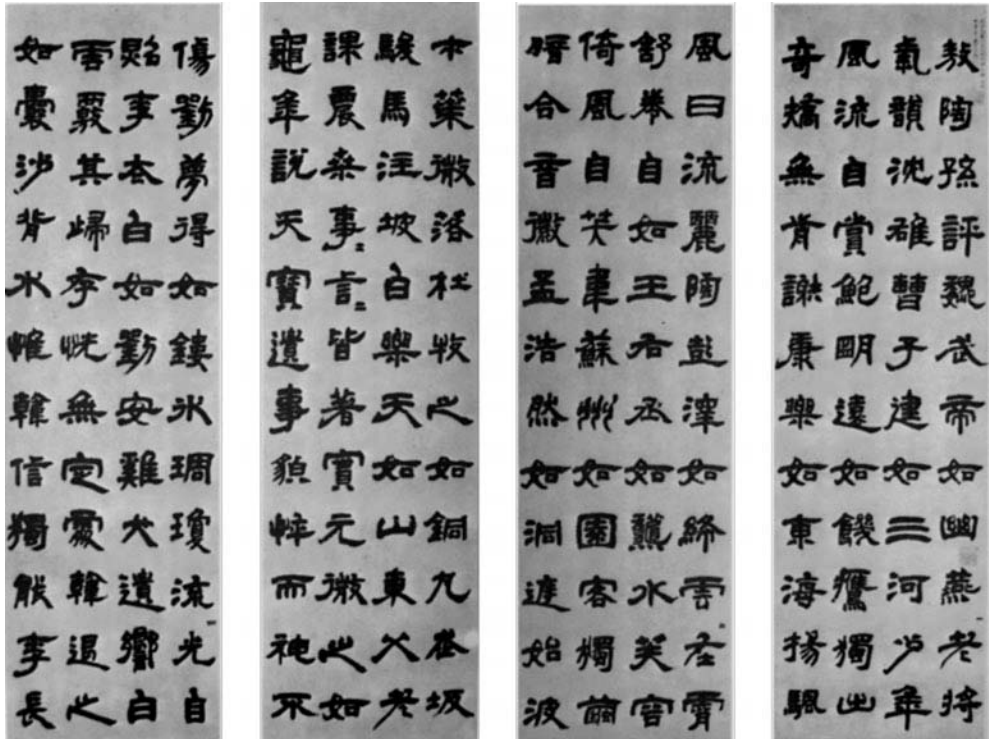 敖陶孫評魏武帝如幽燕老將
氣韻沈雄曹子建如三河少年
風流自賞鮑明遠如饑鷹獨出
奇矯無肯謝康樂如東海揚颿
風日流麗陶彭澤如絳雲在霄
舒卷自如王右丞如龝水芙容
倚風自笑韋蘇州如園客獨繭
暗合音徽孟浩然如洞庭始波
木葉微落杜牧之如銅丸走坂
駿馬注坡白樂天如山東父老
課農桑事〻言〻皆著實元微之如
龜年說天寶遺事貌悴而神不
傷劉夢得如鏤冰琱瓊流光自
照李太白如劉安雞犬遺響白
雲覈其歸存恍無定處韓退之
如囊沙背水惟韓信獨能李長